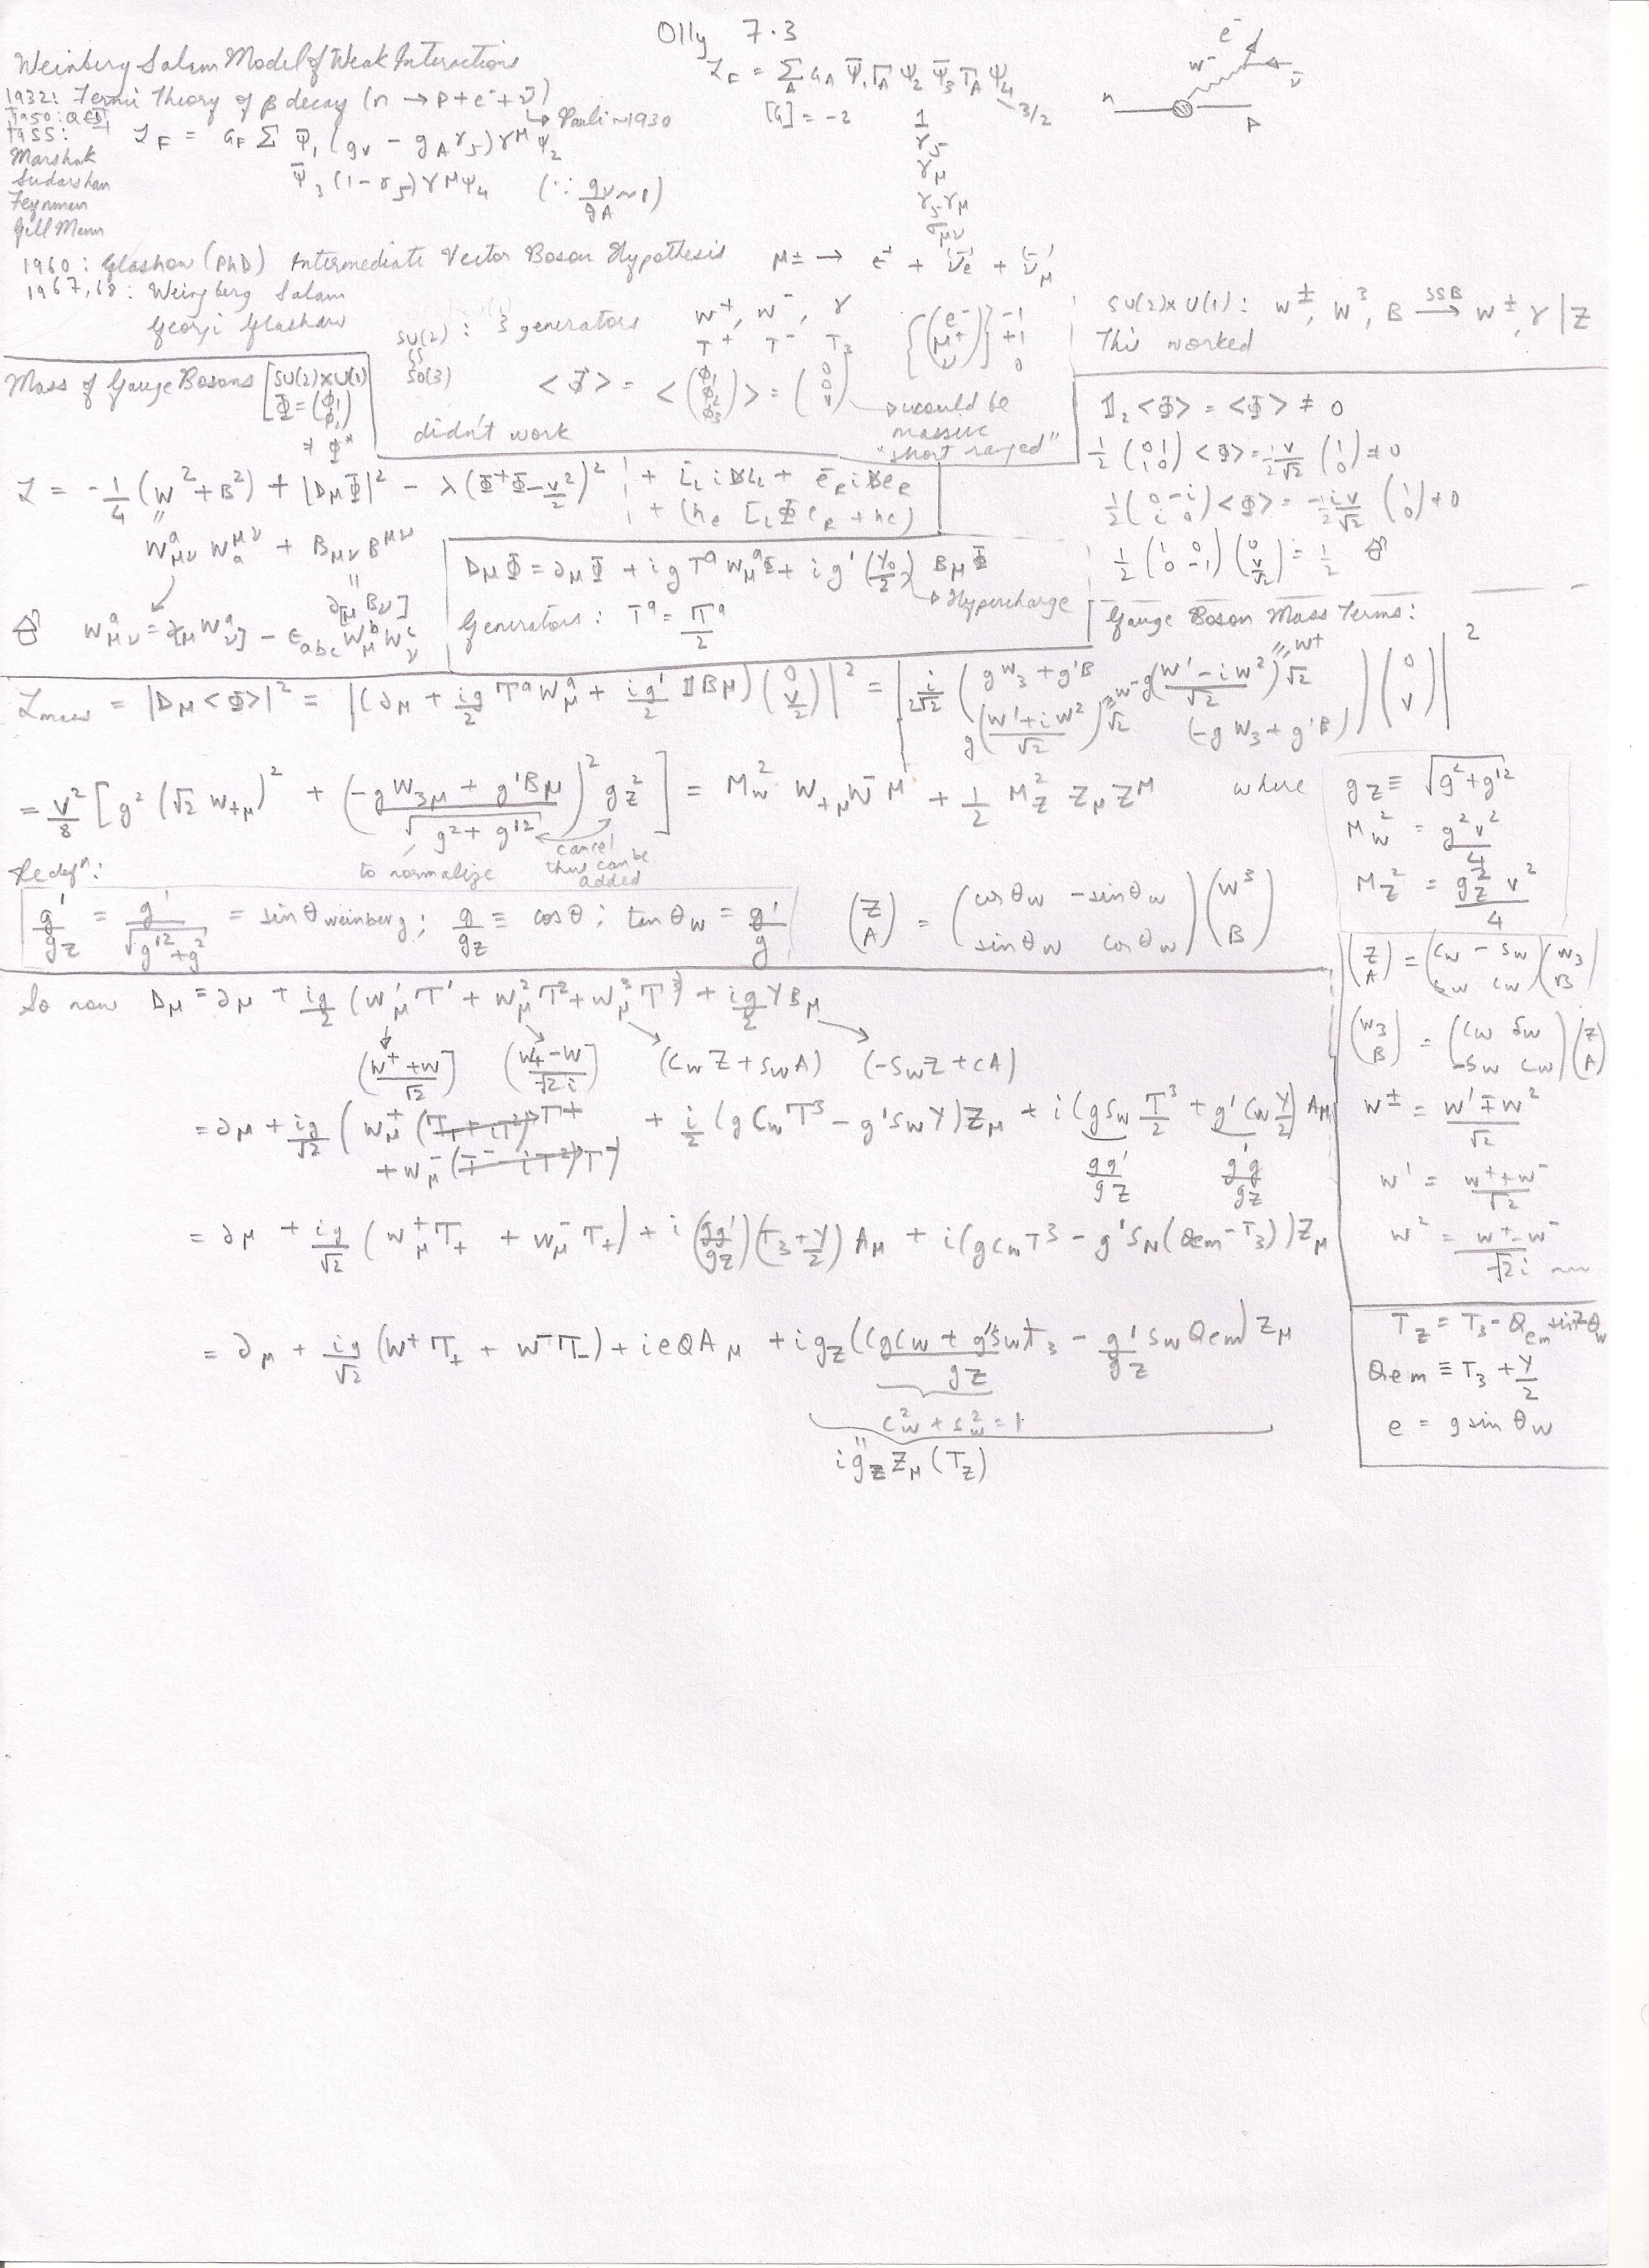 Olly 7.3
Weinberg Salam Model of Weak Interactions
1932: Fermi Theory of β decay (n → p + e⁻ + ν̄)
↳ Pauli ~1930
1950: QED
1955:
Marshak
Sudarshan
Feynman
Gell Mann
ℒ_F = G_F Σ ψ̄₁ (g_V − g_A γ₅) γ^μ ψ₂
ψ̄₃ (1 − γ₅) γ^μ ψ₄ (∵ g_V/g_A ~ 1)
ℒ_F = Σ_A G_A ψ̄₁ Γ_A ψ₂ ψ̄₃ Γ_A ψ₄
3/2
[G] = −2
1
γ₅
γ_μ
γ₅γ_μ
σ_μν
n
W⁻
e⁻
ν̄
p
1960: Glashow (PhD) Intermediate Vector Boson Hypothesis
μ± → e± + (ν̄)_e + (ν̄)_μ
1967, 68: Weinberg Salam
Georgi Glashow
SU(2) : 3 generators W⁺, W⁻, γ
T⁺ T⁻ T₃
SO(3)
<Φ> = <(φ₁ φ₂ φ₃)> = (0 0 v)
{(e⁻ μ⁺ ν)} −1 +1 0
↳ would be massive "short ranged"
didn't work
SU(2)×U(1): W±, W³, B —SSB→ W±, γ | Z
This worked
Mass of Gauge Bosons [SU(2)×U(1)
Φ = (φ₁ φ₂)
≠ Φ*
𝟙₂ <Φ> = <Φ> ≠ 0
1/2 (0 1; 1 0) <Φ> = 1/2 v/√2 (1 0) ≠ 0
1/2 (0 −i; i 0) <Φ> = −1/2 iv/√2 (1 0) ≠ 0
1/2 (1 0; 0 −1) (0 v/√2) = 1/2
ℒ = −1/4 (W² + B²) + |D_μΦ|² − λ(Φ⁺Φ − v²/2)² + L̄_i iD̸L_i + ē_R iD̸e_R
+ (h_e L̄_i Φ e_R + hc)
W^a_μν W_a^μν + B_μν B^μν
∂_[μ B_ν]
W^a_μν = ∂_[μ W^a_ν] − ε_abc W^b_μ W^c_ν
D_μΦ = ∂_μΦ + ig T^a W^a_μ Φ + ig' (Y_0/2) B_μ Φ
↳ Hypercharge
Generators: T^a = τ^a/2
Gauge Boson Mass Terms:
ℒ_mass = |D_μ<Φ>|² = |(∂_μ + ig/2 τ^a W^a_μ + ig'/2 𝟙B_μ)(0 v/2)|² = |i/2√2 (gW₃ + g'B g(W¹ − iW²)/√2 √2; g(W¹ + iW²)/√2 √2 (−gW₃ + g'B)) (0 v)|²
W⁺
W⁻
= v²/8 [g² (√2 W_+μ)² + ((−gW_3μ + g'B_μ)/√(g² + g'²))² g_Z²] = M_W² W_+μ W⁻^μ + 1/2 M_Z² Z_μ Z^μ where
to normalize
cancel
thus can be added
g_Z ≡ √(g² + g'²)
M_W² = g²v²/4
M_Z² = g_Z² v²/4
Redefⁿ:
g'/g_Z = g'/√(g'² + g²) = sin θ_weinberg; g/g_Z = cos θ; tan θ_W = g'/g
(Z A) = (cos θ_W −sin θ_W; sin θ_W cos θ_W) (W³ B)
(Z A) = (c_W −s_W; s_W c_W) (W₃ B)
(W₃ B) = (c_W s_W; −s_W c_W) (Z A)
W± = (W¹ ∓ W²)/√2
W¹ = (W⁺ + W⁻)/√2
W² = (W⁺ − W⁻)/√2 i
So now D_μ = ∂_μ + ig/2 (W¹_μ τ¹ + W²_μ τ² + W³_μ τ³) + ig/2 Y B_μ
((W⁺ + W)/√2) ((W₊ − W)/√2 i) (c_W Z + s_W A) (−s_W Z + cA)
= ∂_μ + ig/√2 (W⁺_μ T⁺ + W⁻_μ T⁻) + i/2 (g c_W τ³ − g' s_W Y) Z_μ + i (g s_W τ³/2 + g' c_W Y/2) A_μ
gg'/g_Z g'g/g_Z
= ∂_μ + ig/√2 (W⁺_μ T₊ + W⁻_μ T₊) + i (gg'/g_Z)(T₃ + Y/2) A_μ + i (g c_W T³ − g' s_W (Q_em − T₃)) Z_μ
= ∂_μ + ig/√2 (W⁺T₊ + W⁻T₋) + ieQA_μ + i g_Z ((g c_W + g' s_W)/g_Z T₃ − g'/g_Z s_W Q_em) Z_μ
c_W² + s_W² = 1
i g_Z Z_μ (T_Z)
T_Z = T₃ − Q_em sin²θ_W
Q_em ≡ T₃ + Y/2
e = g sin θ_W